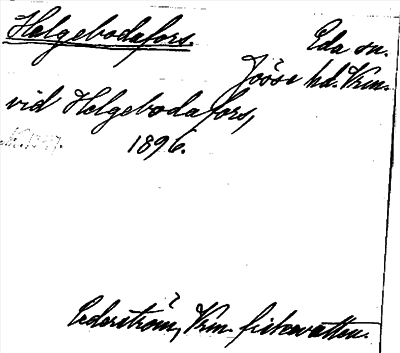 Helgebodafors. Eda sn.
Jösse hd. Vrm.
vid Helgebodafors,
1896.
Cederström, Vrm. fiskevatten.